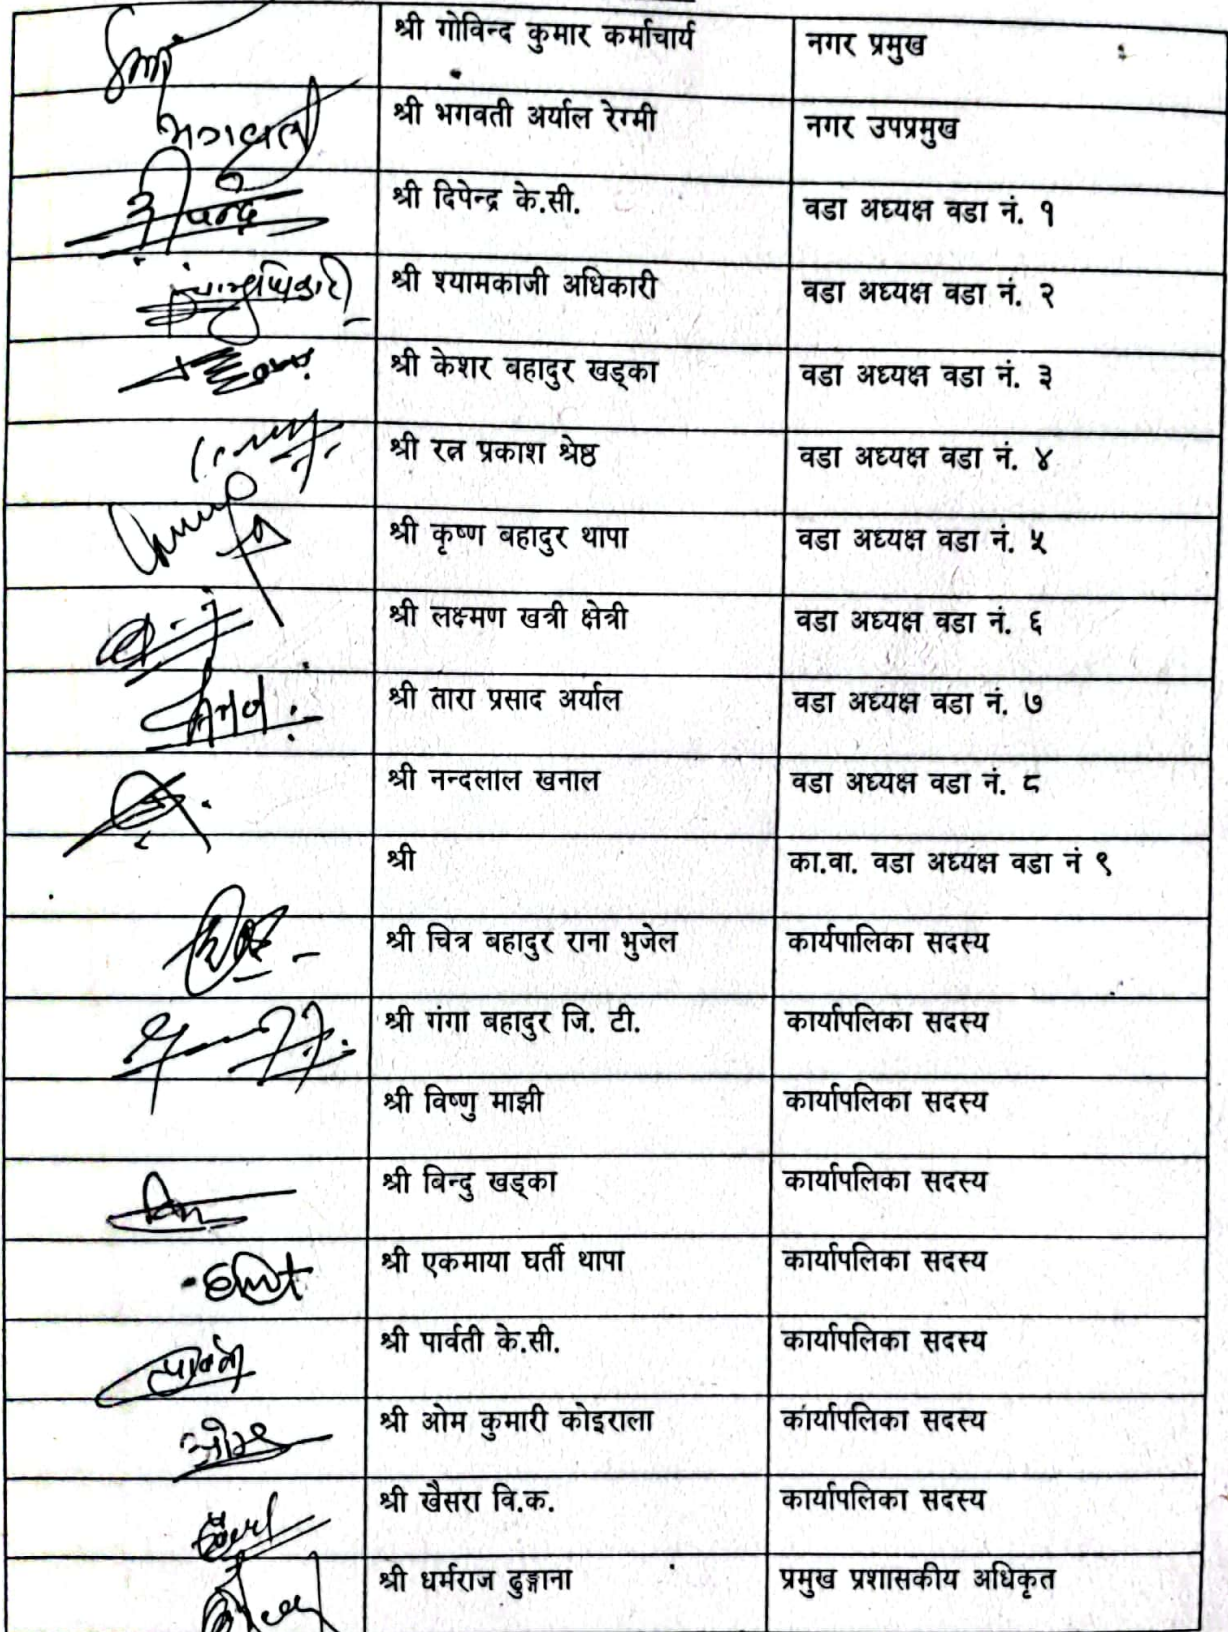 श्री गोविन्द कुमार कर्माचार्य नगर प्रमुख
भगवती श्री भगवती अर्याल रेग्मी नगर उपप्रमुख
श्री दिपेन्द्र के.सी. वडा अध्यक्ष वडा नं. १
श्री श्यामकाजी अधिकारी वडा अध्यक्ष वडा नं. २
श्री केशर बहादुर खड्का वडा अध्यक्ष वडा नं. ३
श्री रत्न प्रकाश श्रेष्ठ वडा अध्यक्ष वडा नं. ४
श्री कृष्ण बहादुर थापा वडा अध्यक्ष वडा नं. ५
श्री लक्ष्मण खत्री क्षेत्री वडा अध्यक्ष वडा नं. ६
श्री तारा प्रसाद अर्याल वडा अध्यक्ष वडा नं. ७
श्री नन्दलाल खनाल वडा अध्यक्ष वडा नं. ८
श्री का.वा. वडा अध्यक्ष वडा नं ९
श्री चित्र बहादुर राना भुजेल कार्यपालिका सदस्य
श्री गंगा बहादुर जि. टी. कार्यापलिका सदस्य
श्री विष्णु माझी कार्यापलिका सदस्य
श्री बिन्दु खड्का कार्यापलिका सदस्य
श्री एकमाया घर्ती थापा कार्यापलिका सदस्य
पार्वती श्री पार्वती के.सी. कार्यापलिका सदस्य
ओम श्री ओम कुमारी कोइराला कार्यापलिका सदस्य
श्री खैसरा वि.क. कार्यापलिका सदस्य
श्री धर्मराज ढुङ्गाना प्रमुख प्रशासकीय अधिकृत